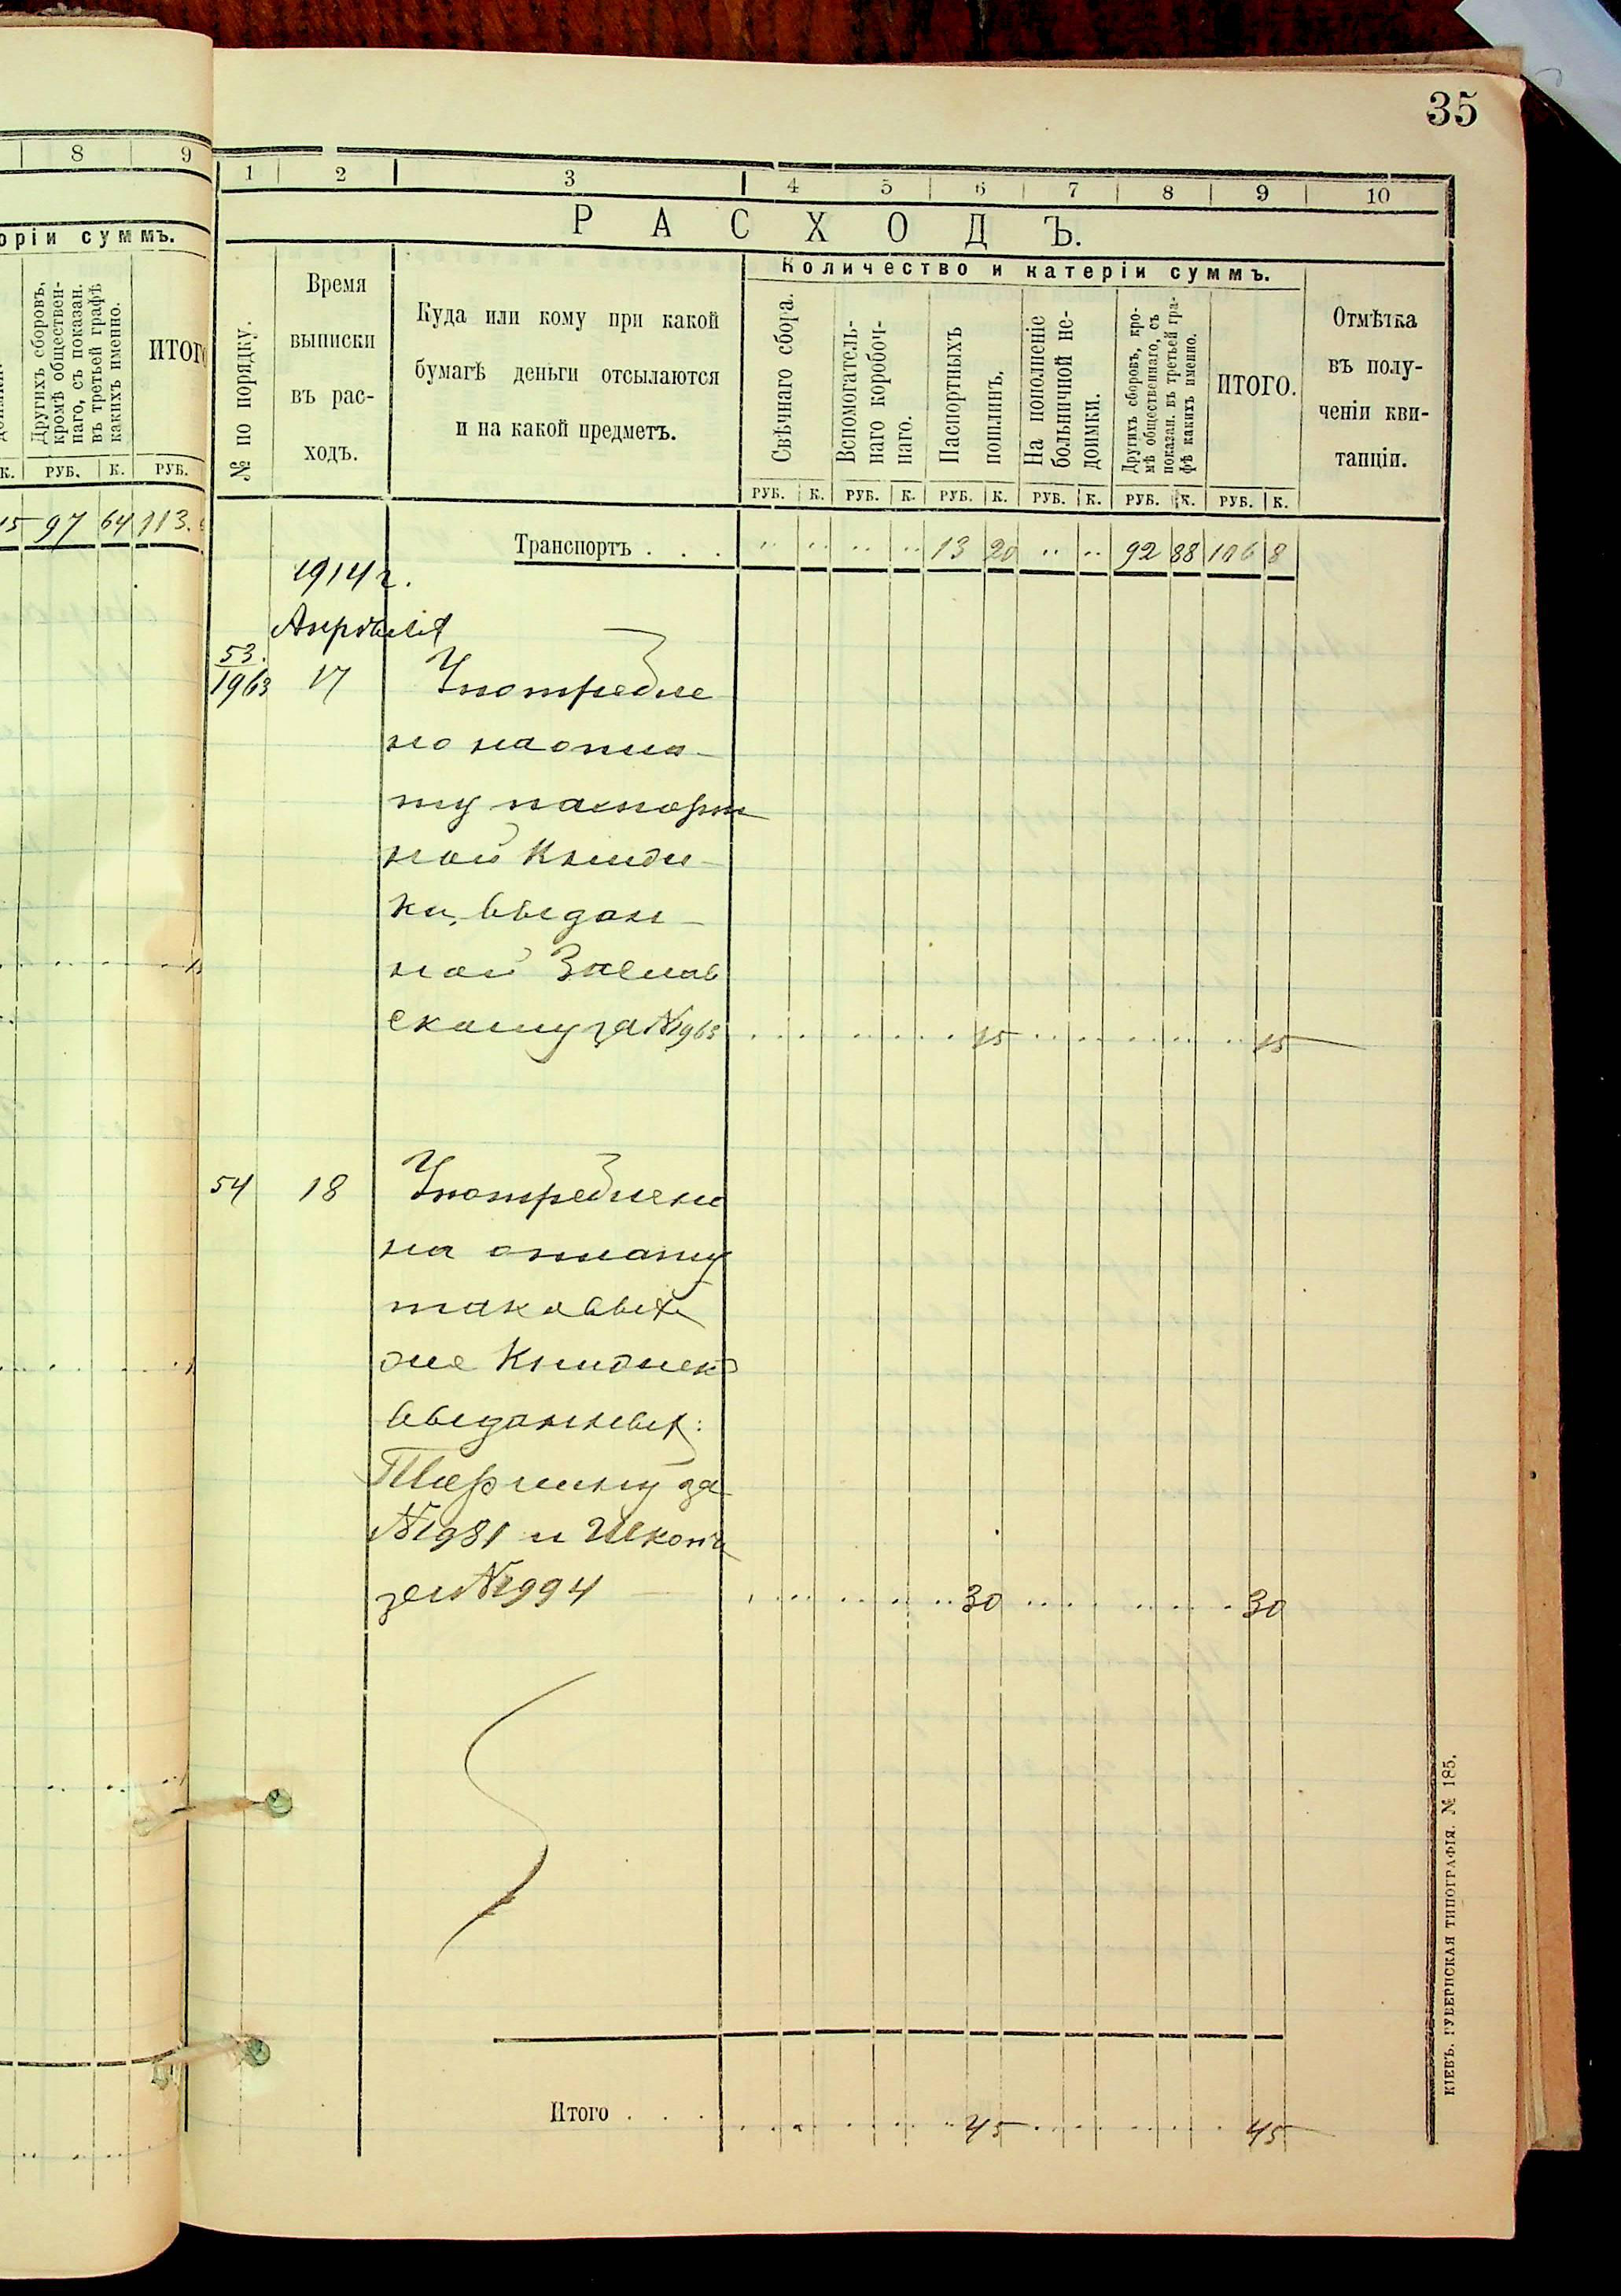 35
8 9
оріи суммъ.
Другихъ сборовъ,
кромѣ обществен-
наго, съ показан.
въ третьей графѣ
какихъ именно.
ИТОГ
К. РУБ. К. РУБ.
15 97 64 113.
1 2 3 4 5 6 7 8 9 10
РАСХОДЪ.
№ по порядку.
Время
выписки
въ рас-
ходъ.
Куда или кому при какой
бумагѣ деньги отсылаются
и на какой предметъ.
Количество и катеріи суммъ.
Свѣчнаго сбора.
Вспомогатель-
наго коробоч-
наго.
Паспортныхъ
пошлинъ.
На пополненіе
больничной не-
доимки.
Другихъ сборовъ, кро-
мѣ общественнаго, съ
показан. въ третьей гра-
фѣ какихъ именно.
ИТОГО.
Отмѣтка
въ полу-
ченіи кви-
танціи.
РУБ. К. РУБ. К. РУБ. К. РУБ. К. РУБ. К. РУБ. К.
Транспортъ . . . 13 20 92 88 106 8
1914 г.
Апрѣля
53.
1963 17 Употребле
но на опла-
ту паспорт
ной Книж-
ки, выдан-
ной Заслав
скому за №1963 15 15
54 18 Употреблено
на оплату
таковыхъ
же Книжекъ
выданныхъ:
за
№1981 и
за №1994 30 30
Итого . . . 45 45
КІЕВЪ. ГУБЕРНСКАЯ ТИПОГРАФІЯ. № 185.